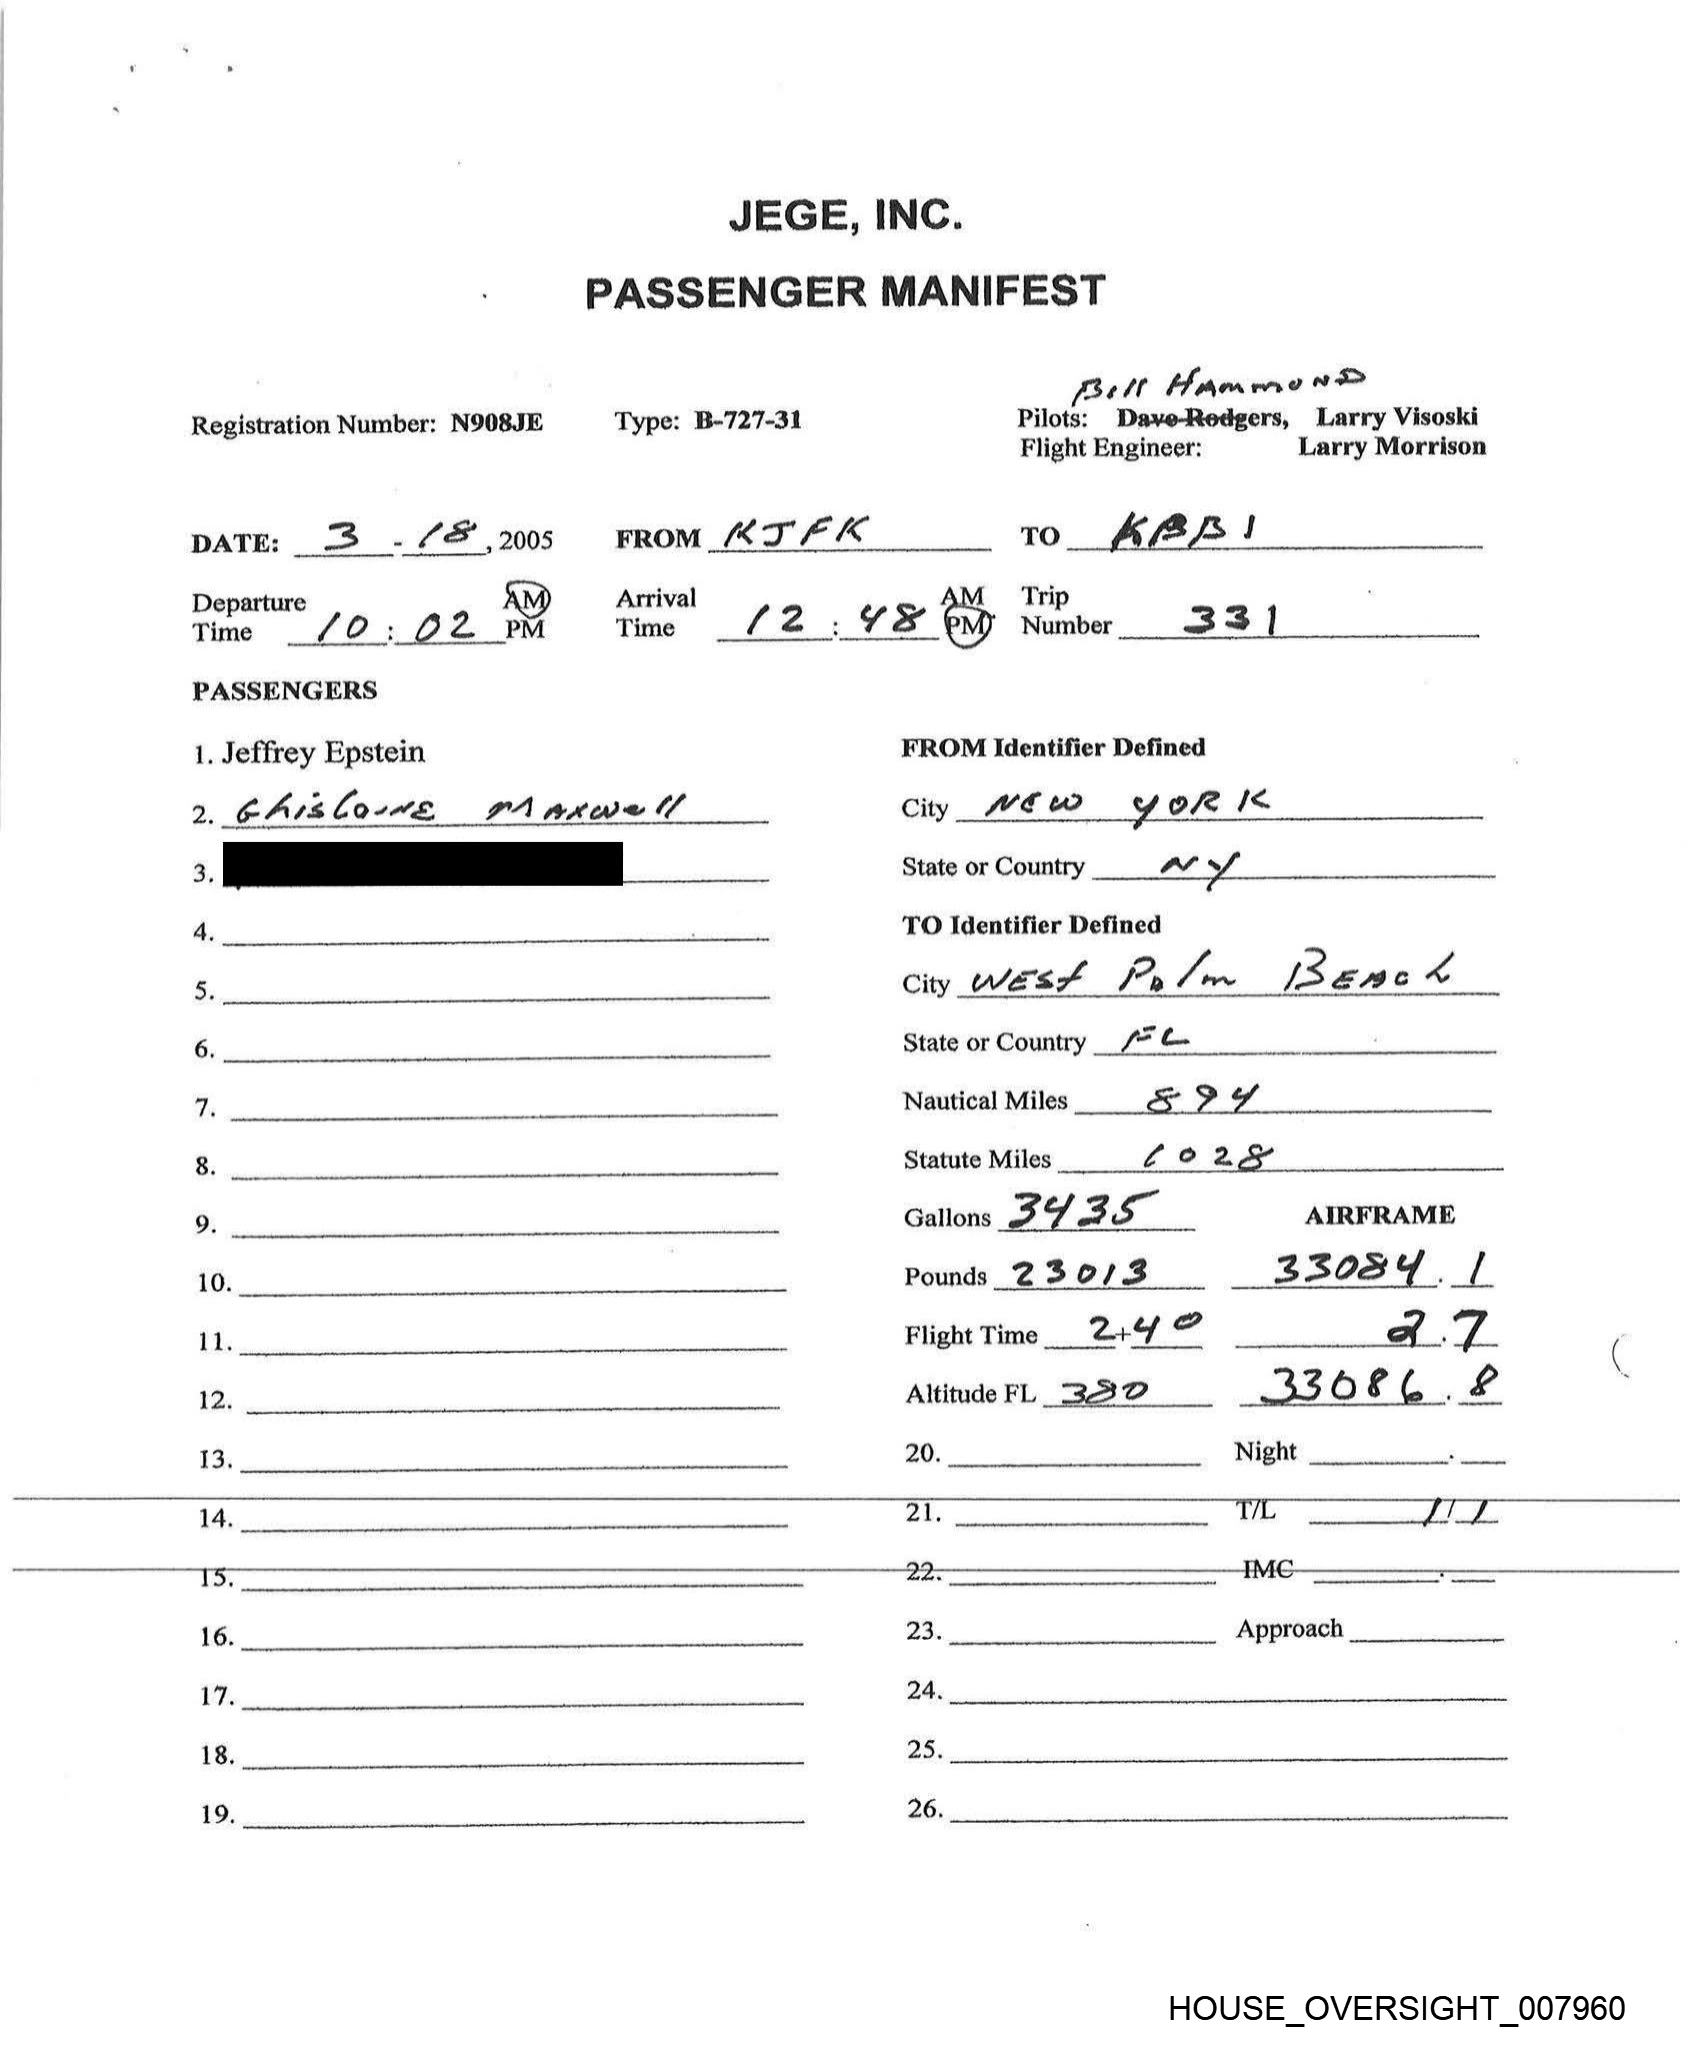 JEGE, INC.
PASSENGER MANIFEST
Bill Hammond
Registration Number: N908JE Type: B-727-31 Pilots: Dave Rodgers, Larry Visoski
Flight Engineer: Larry Morrison
DATE: 3 - 18, 2005 FROM KJFK TO KBBI
Departure Time 10 : 02 AM PM Arrival Time 12 : 48 AM PM Trip Number 331
PASSENGERS
1. Jeffrey Epstein FROM Identifier Defined
2. Ghislaine Maxwell City NEW YORK
3. State or Country NY
4. TO Identifier Defined
5. City WEST Palm BEACH
6. State or Country FL
7. Nautical Miles 894
8. Statute Miles 1028
9. Gallons 3435 AIRFRAME
10. Pounds 23013 33084.1
11. Flight Time 2+40 2.7
12. Altitude FL 380 33086.8
13. 20. Night .
14. 21. T/L 1/1
15. 22. IMC .
16. 23. Approach
17. 24.
18. 25.
19. 26.
HOUSE_OVERSIGHT_007960